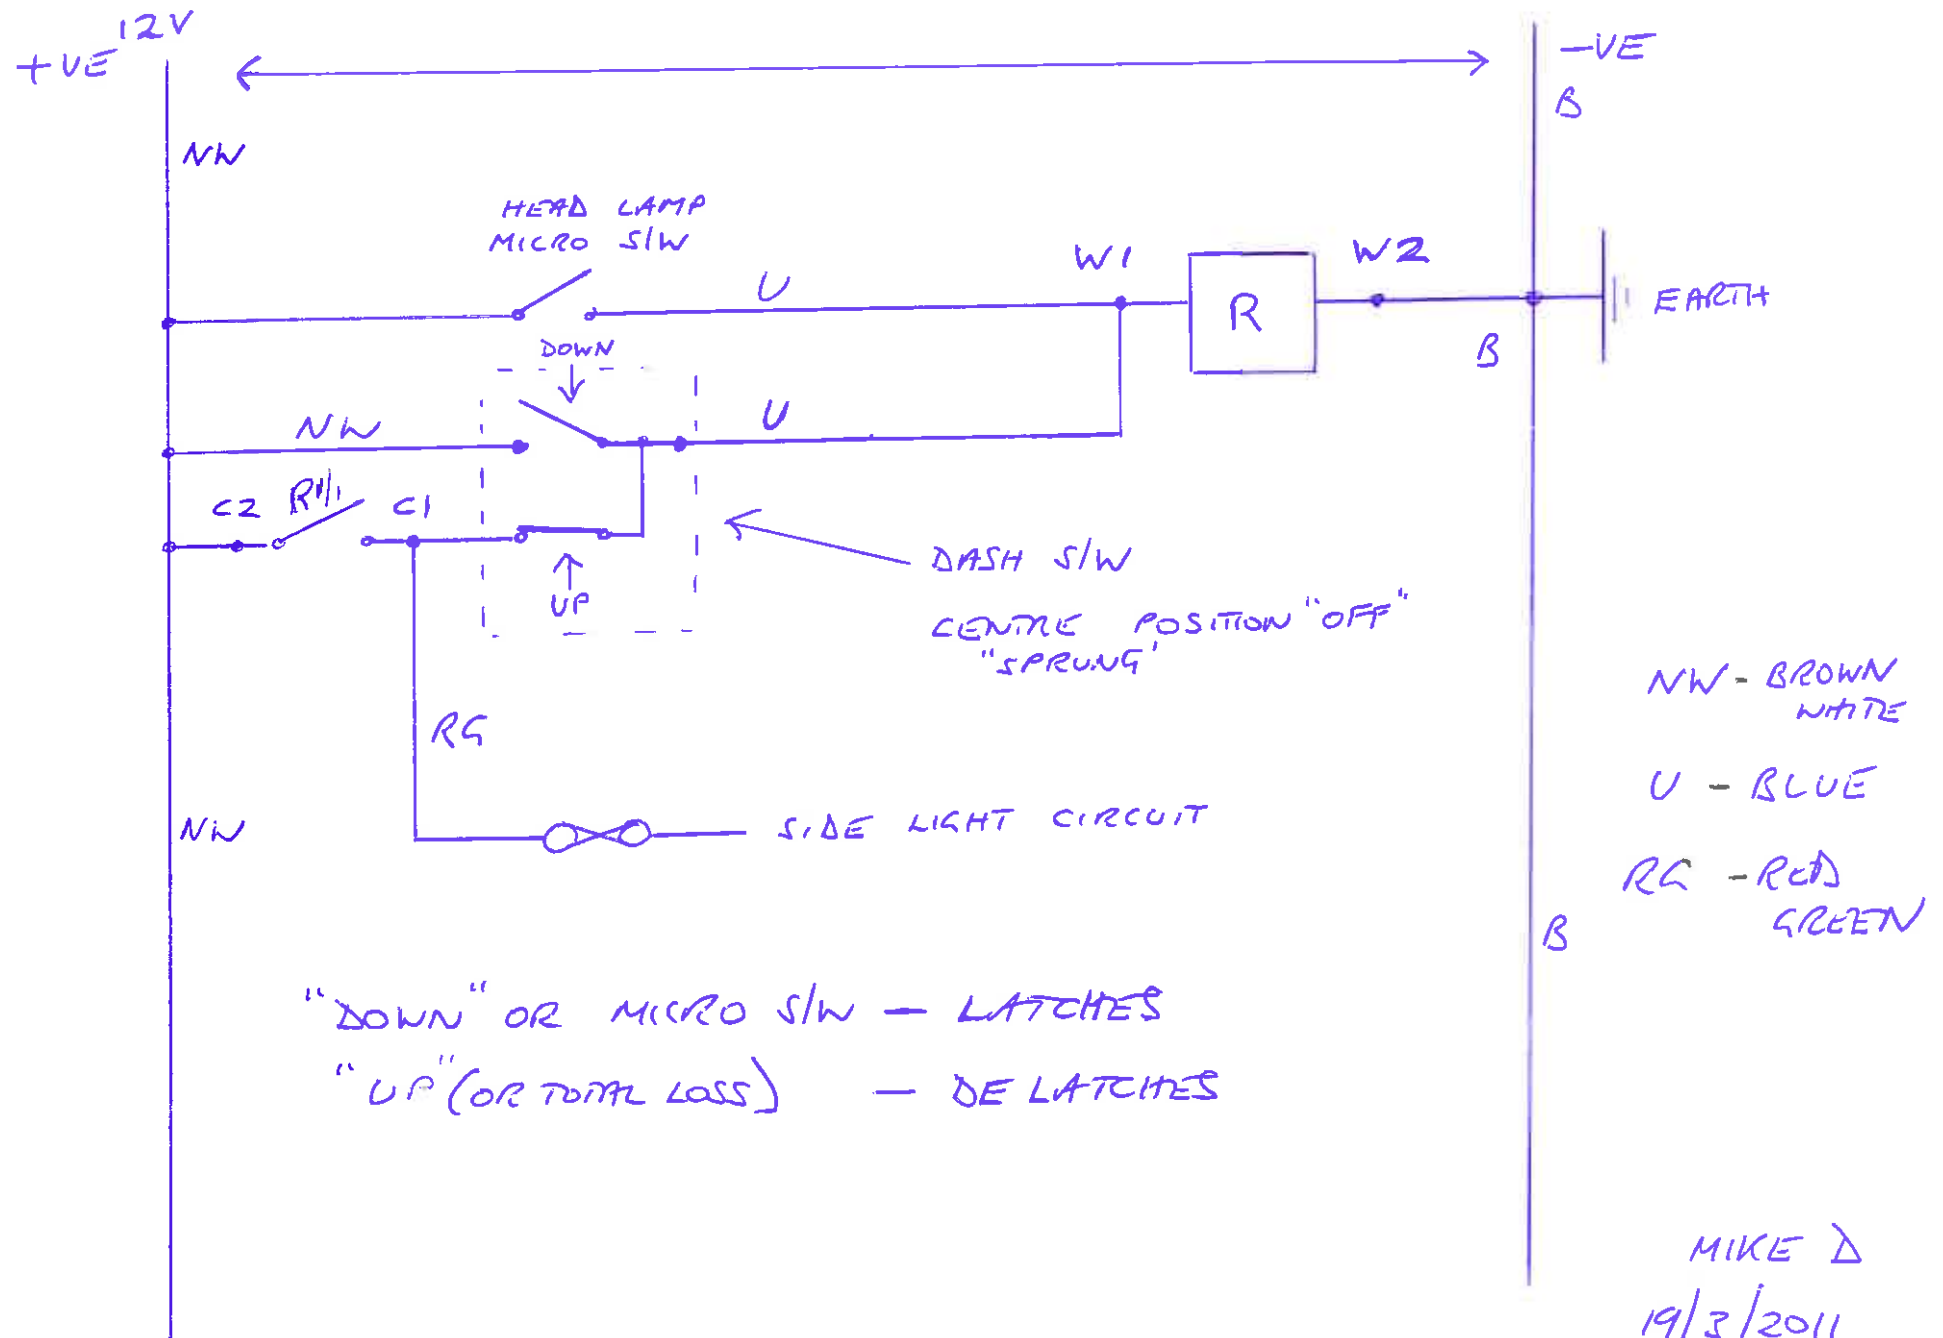 12V
+VE
-VE
B
NW
HEAD LAMP
MICRO S/W
U
W1
R
W2
EARTH
B
DOWN
NW
U
C2
R1/1
C1
UP
DASH S/W
CENTRE POSITION "OFF"
"SPRUNG'
NW - BROWN
WHITE
RG
U - BLUE
NW
SIDE LIGHT CIRCUIT
RG - RED
GREEN
B
"DOWN" OR MICRO S/W — LATCHES
"UP" (OR TOTAL LOSS) — DE LATCHES
MIKE D
19/3/2011